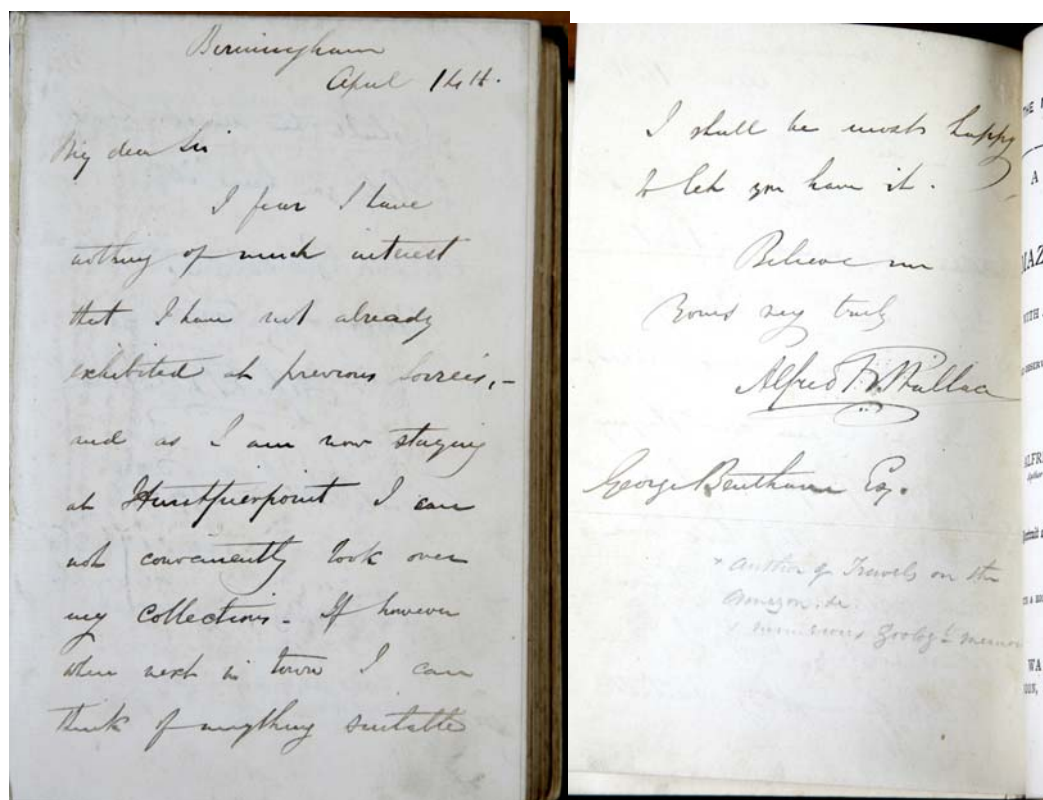 Birmingham
April 14th.
My dear Sir
I fear I have
nothing of much interest
that I have not already
exhibited at previous Soirees, –
and as I am now staying
at Hurstpierpoint I can
not conveniently look over
my Collections. If however
when next in town I can
think of anything suitable
I shall be most happy
to let you have it.
Believe me
Yours very truly
Alfred R. Wallace
George Bentham Esq.
Author of Travels on the
Amazon. &c.
numerous Zoologl. memoi
THE
A
MAZ
WITH
OBSERV
ALFR
WA